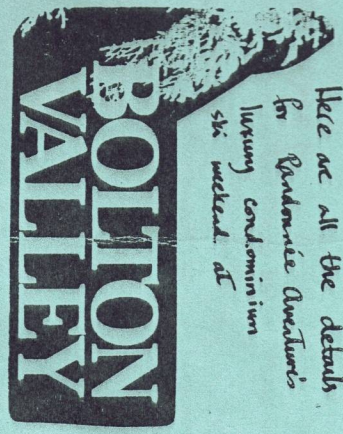 Here are all the details
for Randonnée Aventure's
luxury condominium
ski weekend at
BOLTON
VALLEY